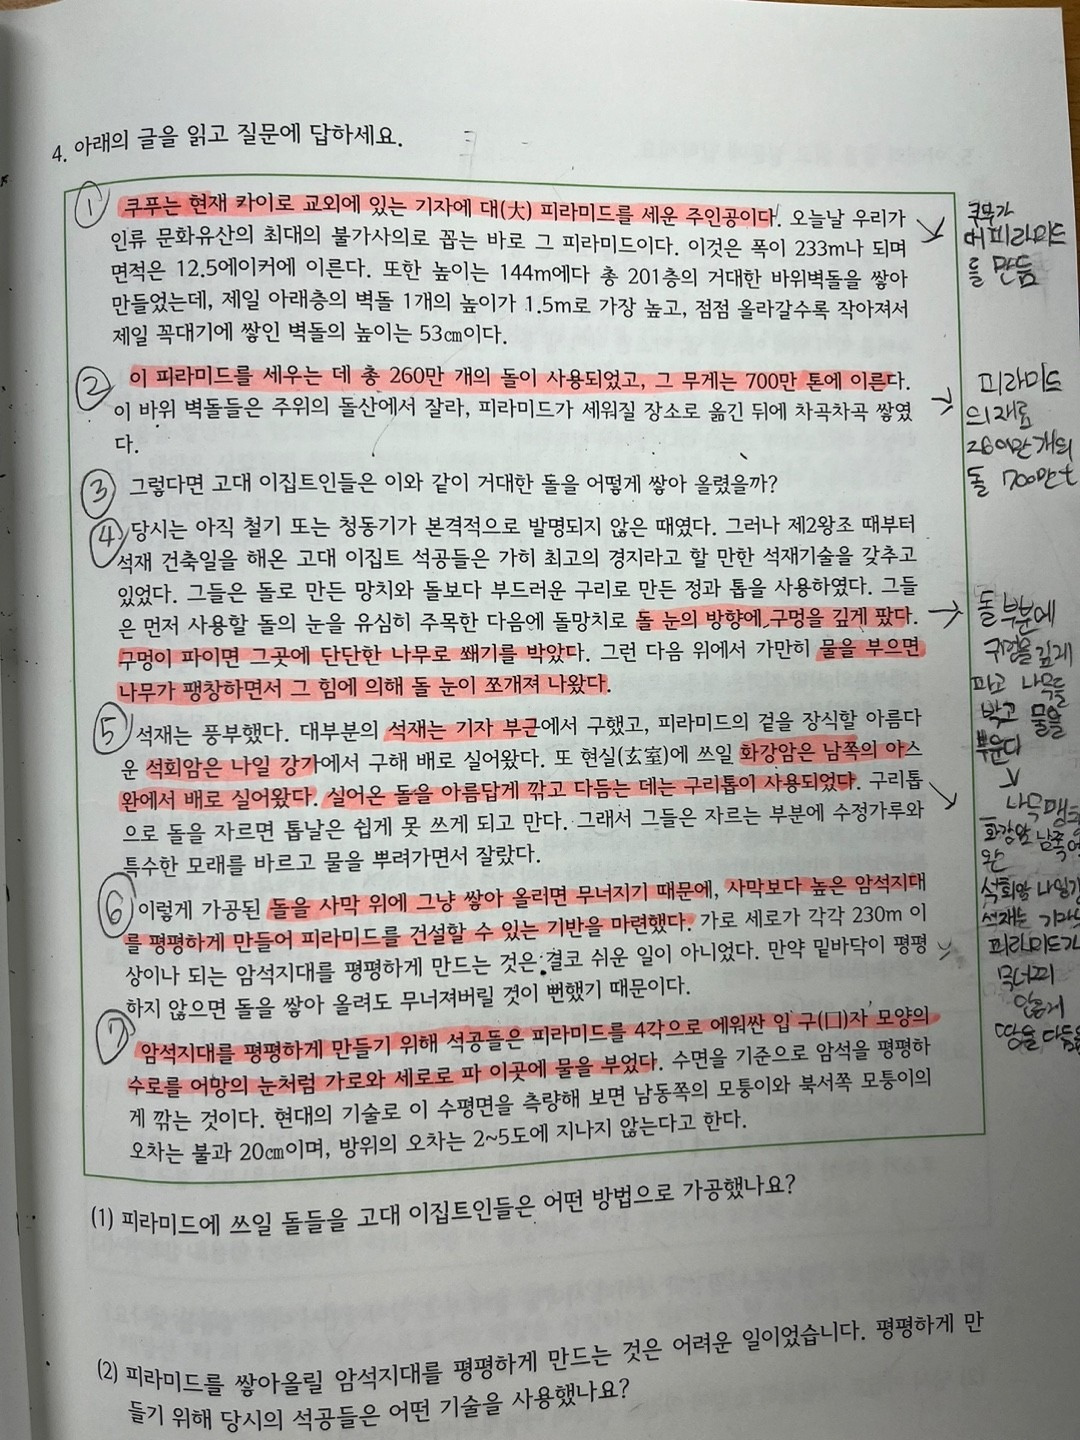 4. 아래의 글을 읽고 질문에 답하세요.
① 쿠푸는 현재 카이로 교외에 있는 기자에 대(大) 피라미드를 세운 주인공이다. 오늘날 우리가
인류 문화유산의 최대의 불가사의로 꼽는 바로 그 피라미드이다. 이것은 폭이 233m나 되며
면적은 12.5에이커에 이른다. 또한 높이는 144m에다 총 201층의 거대한 바위벽돌을 쌓아
만들었는데, 제일 아래층의 벽돌 1개의 높이가 1.5m로 가장 높고, 점점 올라갈수록 작아져서
제일 꼭대기에 쌓인 벽돌의 높이는 53㎝이다.
② 이 피라미드를 세우는 데 총 260만 개의 돌이 사용되었고, 그 무게는 700만 톤에 이른다.
이 바위 벽돌들은 주위의 돌산에서 잘라, 피라미드가 세워질 장소로 옮긴 뒤에 차곡차곡 쌓였
다.
③ 그렇다면 고대 이집트인들은 이와 같이 거대한 돌을 어떻게 쌓아 올렸을까?
④ 당시는 아직 철기 또는 청동기가 본격적으로 발명되지 않은 때였다. 그러나 제2왕조 때부터
석재 건축일을 해온 고대 이집트 석공들은 가히 최고의 경지라고 할 만한 석재기술을 갖추고
있었다. 그들은 돌로 만든 망치와 돌보다 부드러운 구리로 만든 정과 톱을 사용하였다. 그들
은 먼저 사용할 돌의 눈을 유심히 주목한 다음에 돌망치로 돌 눈의 방향에 구멍을 깊게 팠다.
구멍이 파이면 그곳에 단단한 나무로 쐐기를 박았다. 그런 다음 위에서 가만히 물을 부으면
나무가 팽창하면서 그 힘에 의해 돌 눈이 쪼개져 나왔다.
⑤ 석재는 풍부했다. 대부분의 석재는 기자 부근에서 구했고, 피라미드의 겉을 장식할 아름다
운 석회암은 나일 강가에서 구해 배로 실어왔다. 또 현실(玄室)에 쓰일 화강암은 남쪽의 아스
완에서 배로 실어왔다. 실어온 돌을 아름답게 깎고 다듬는 데는 구리톱이 사용되었다. 구리톱
으로 돌을 자르면 톱날은 쉽게 못 쓰게 되고 만다. 그래서 그들은 자르는 부분에 수정가루와
특수한 모래를 바르고 물을 뿌려가면서 잘랐다.
⑥ 이렇게 가공된 돌을 사막 위에 그냥 쌓아 올리면 무너지기 때문에, 사막보다 높은 암석지대
를 평평하게 만들어 피라미드를 건설할 수 있는 기반을 마련했다. 가로 세로가 각각 230m 이
상이나 되는 암석지대를 평평하게 만드는 것은 결코 쉬운 일이 아니었다. 만약 밑바닥이 평평
하지 않으면 돌을 쌓아 올려도 무너져버릴 것이 뻔했기 때문이다.
⑦ 암석지대를 평평하게 만들기 위해 석공들은 피라미드를 4각으로 에워싼 입 구(口)자 모양의
수로를 어망의 눈처럼 가로와 세로로 파 이곳에 물을 부었다. 수면을 기준으로 암석을 평평하
게 깎는 것이다. 현대의 기술로 이 수평면을 측량해 보면 남동쪽의 모퉁이와 북서쪽 모퉁이의
오차는 불과 20㎝이며, 방위의 오차는 2~5도에 지나지 않는다고 한다.
쿠푸가
대피라미드
를 만듬
피라미드
의 재료
260만개의
돌 700만t
돌 부분에
구멍을 깊게
파고 나무를
박고 물을
뿌운다
나무팽창
화강암 남쪽
완
석회암 나일강
석재는 기자
피라미드가
무너지
않게
땅을 다듬음
(1) 피라미드에 쓰일 돌들을 고대 이집트인들은 어떤 방법으로 가공했나요?
(2) 피라미드를 쌓아올릴 암석지대를 평평하게 만드는 것은 어려운 일이었습니다. 평평하게 만
들기 위해 당시의 석공들은 어떤 기술을 사용했나요?